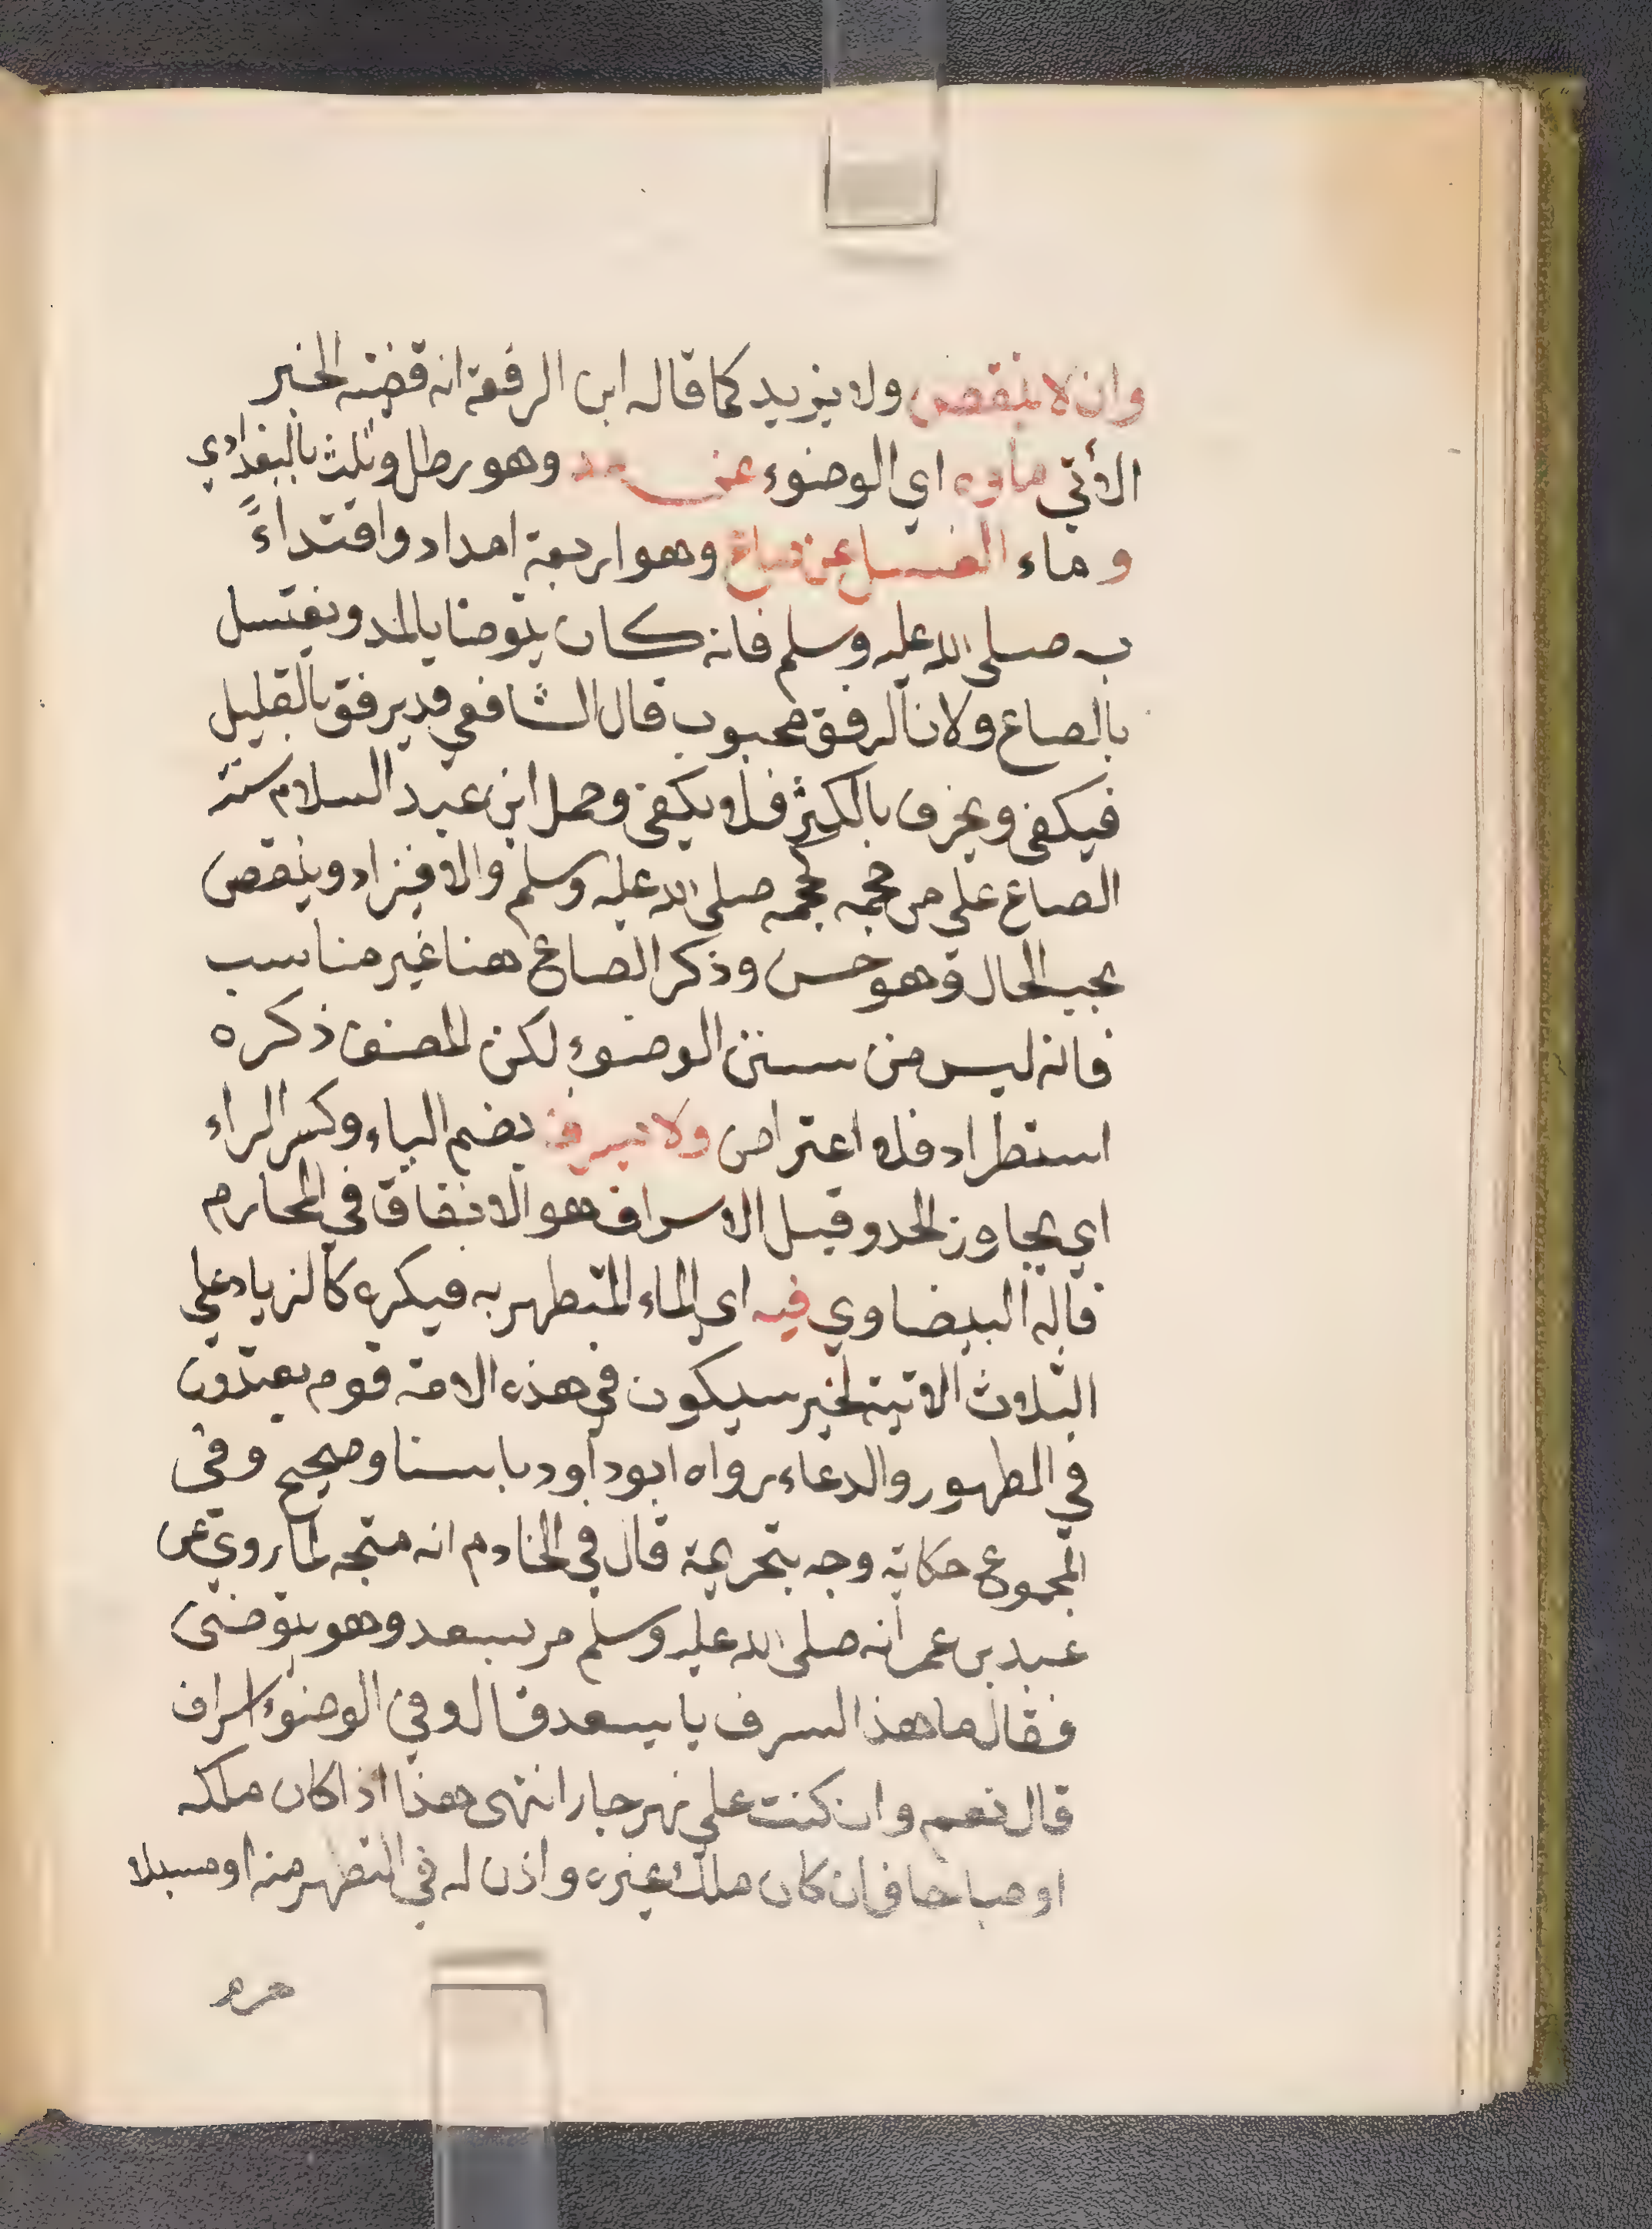 وان لا ينقص ولا يزيد كما قاله ابن الرفعة انه قضية الخبر
الأتي ماوه اي الوضوء عن مد وهو رطل وثلث بالبغدادي
و ماء الغسل عن صاع وهو اربعة امداد واقتداءً
به صلى الله عليه وسلم فانه كان يتوضا بالمد ويغتسل
بالصاع ولان الرفق محبوب قال الشافعي قد يرفق بالقليل
فيكفى ويخرق بالكثير فلا يكفى وحمل ابن عبد السلام سنة
الصاع على من حجمه كحجمه صلى الله عليه وسلم والا فيزاد وينقص
بحسب الحال وهو حسن وذكر الصاع هنا غير مناسب
فانه ليس من سنن الوضوء لكن المصنف ذكره
استطراد فلا اعتراض ولا يسرف بضم الياء وكسر الراء
اي يجاوز الحد وقيل الاسراف هو الانفاق في المحارم
قاله البيضاوي فيه اي الماء المتطهر به فيكره كالزياد على
الثلاث الاتية لخبر سيكون في هذه الامة قوم يعتدون
في الطهور والدعاء رواه ابو داود باسناد صحيح وفي
المجموع حكاية وجه بتحريمة قال في الخادم انه متجه لما روي عن
عبد بن عمر انه صلى الله عليه وسلم مر بسعد وهو يتوضئ
فقال ما هذا السرف يا سعد قال وفي الوضوء اسراف
قال نعم وان كنت على نهر جار انتهى هذا اذا كان ملكه
او مباحا فان كان ملك غيره واذن له في التطهر منه او مسبلا
حرم